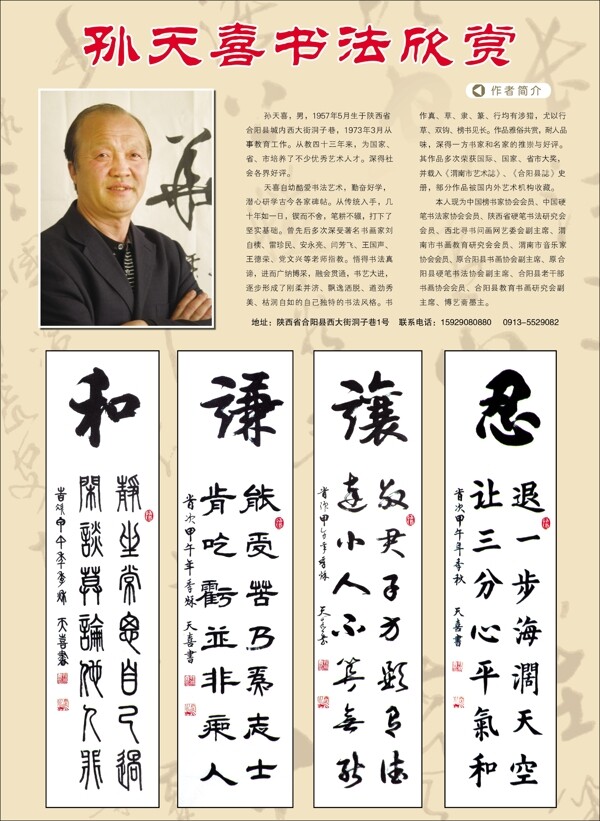 孙天喜书法欣赏
作者简介
孙天喜，男，1957年5月生于陕西省
合阳县城内西大街洞子巷，1973年3月从
事教育工作。从教四十三年来，为国家、
省、市培养了不少优秀艺术人才。深得社
会各界好评。
天喜自幼酷爱书法艺术，勤奋好学，
潜心研学古今各家碑帖。从传统入手，几
十年如一日，锲而不舍，笔耕不辍，打下了
坚实基础。曾先后多次深受著名书画家刘
自椟、雷珍民、安永亮、闫芳飞、王国声、
王德荣、党文兴等老师指教。悟得书法真
谛，进而广纳博采，融会贯通，书艺大进，
逐步形成了刚柔并济、飘逸洒脱、遒劲秀
美、枯润自如的自己独特的书法风格。书
作真、草、隶、篆、行均有涉猎，尤以行
草，双钩、榜书见长。作品雅俗共赏，耐人品
味，深得一方书家和名家的推崇与好评。
其作品多次荣获国际、国家、省市大奖，
并载入《渭南市艺术誌》、《合阳县誌》史
册，部分作品被国内外艺术机构收藏。
本人现为中国榜书家协会会员、中国硬
笔书法家协会会员、陕西省硬笔书法研究会
会员、西北寻书问画网艺委会副主席、渭
南市书画教育研究会会员、渭南市音乐家
协会会员、原合阳县书画协会副主席、原合
阳县硬笔书法协会副主席、合阳县老干部
书画协会会员、合阳县教育书画研究会副
主席、博艺斋墨主。
地址：陕西省合阳县西大街洞子巷1号 联系电话：15929080880 0913-5529082
忍
退一步海阔天空
让三分心平氣和
岁次甲午年季秋 天喜書
讓
敬君子方顯有德
达小人不算無能
岁次甲午年季秋 天喜書
谦
能受苦乃爲志士
肯吃虧並非痴人
岁次甲午年季秋 天喜書
和
靜坐常思自己過
閑談莫論他人非
岁次甲午年季秋 天喜書